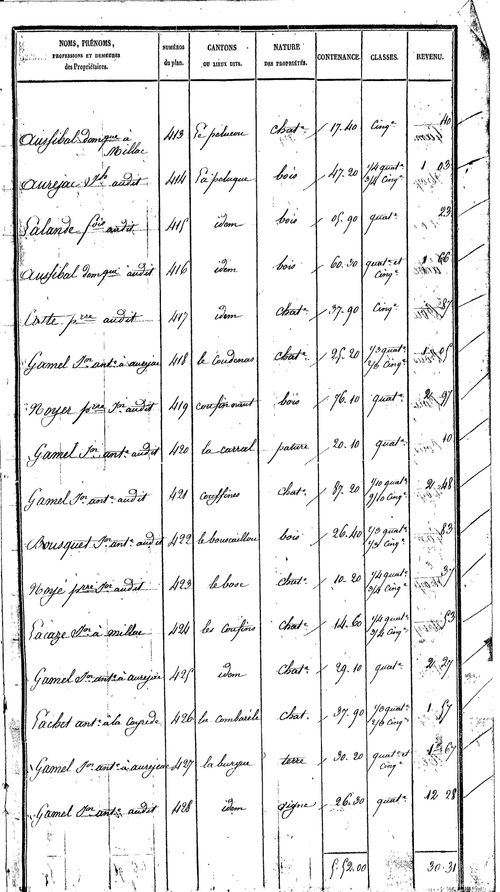 NOMS, PRÉNOMS, PROFESSIONS ET DEMEURES des Propriétaires. NUMÉROS du plan. CANTONS OU LIEUX DITS. NATURE DES PROPRIÉTÉS. CONTENANCE. CLASSES. REVENU.
Aussibal domque à Millac 413 chate 17.40 Cinqe 40
Aurejac audit 414 bois 47.20 1/4 quate 3/4 Cinqe 1 03
Lalande fois audit 415 idem bois 05.90 quate 23
Aussibal domque audit 416 idem bois 60.30 quate et Cinqe 1 66
Coste pre audit 417 idem Chate 37.90 Cinqe 87
Gamel Jn ante à aurejac 418 le Coudenas Chate 25.20 1/3 quate 2/3 Cinqe 1 05
Noyer pre Jn audit 419 bois 76.10 quate 2 97
Gamel Jn ante audit 420 la carral pature 20.10 quate 10
Gamel Jn ante audit 421 couffins Chate 87.20 1/10 quate 9/10 Cinqe 2 48
Bousquet Jn ante audit 422 le bouscaillou bois 26.40 83
Noyé pre Jn audit 423 le bosc Chate 10.20 1/4 quate 3/4 Cinqe 37
Lacaze Jn à millac 424 les Coufins Chate 14.60 1/4 quate 3/4 Cinqe 53
Gamel Jn ante à aurejac 425 idem Chate 29.10 quate 2 27
Lachet ante à la 426 la Combarele Chat. 37.90 1/3 quate 2/3 Cinqe 1 57
Gamel Jn ante à aurejac 427 terre 30.20 quate et Cinqe 1 67
Gamel Jn ante audit 428 idem vigne 26.30 quate 12 28
5.52.00 30.31